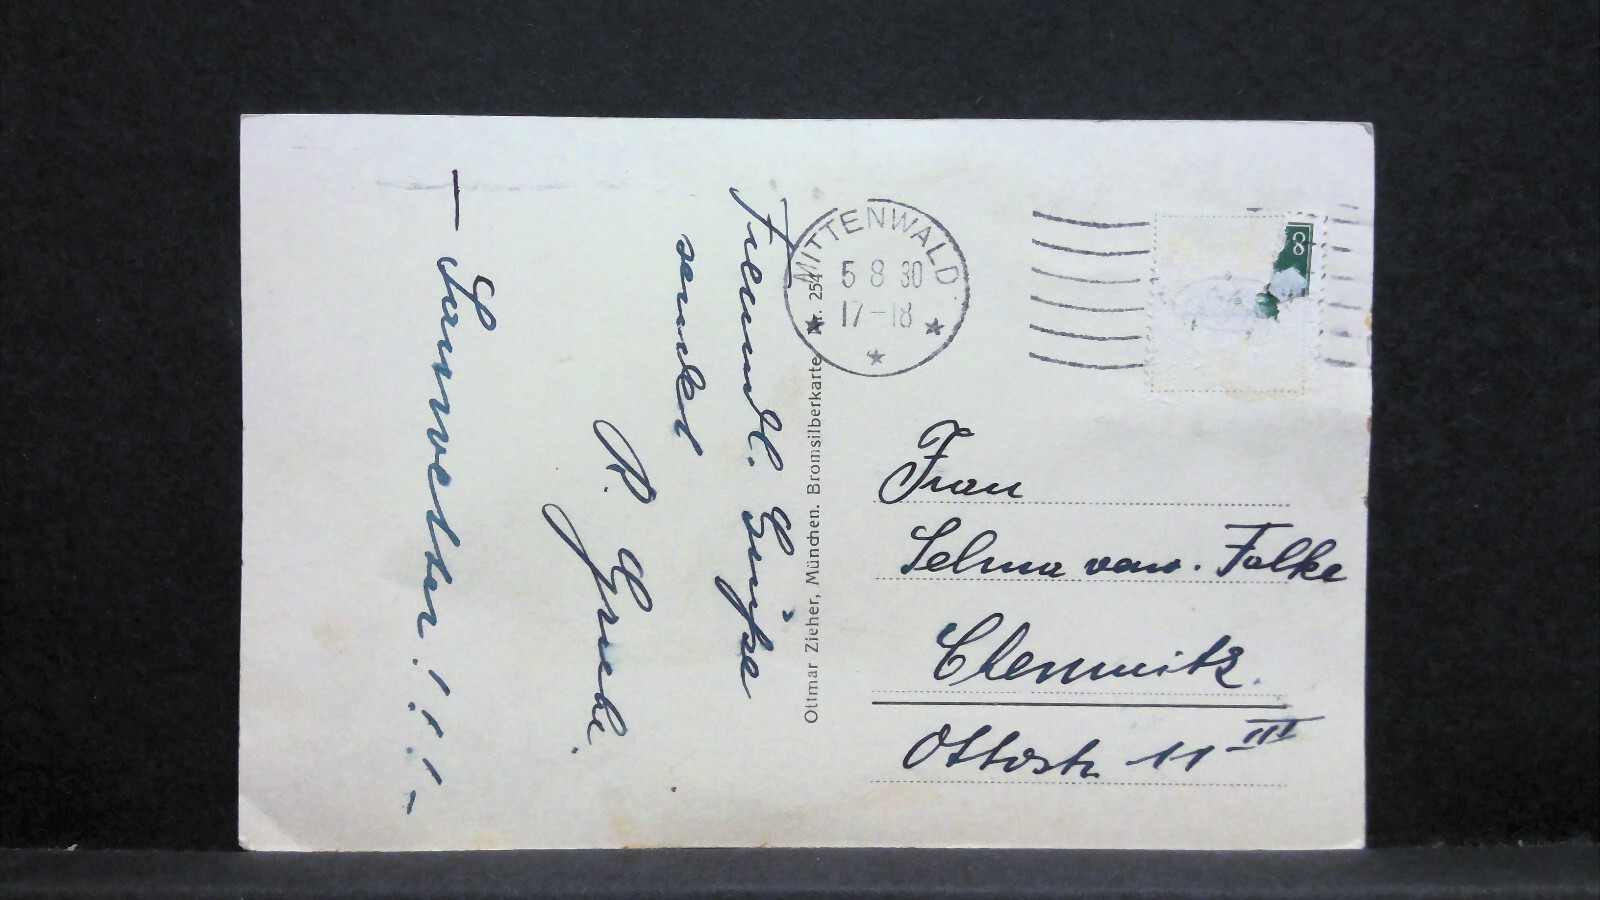 Freundl. Grüße
sendet
— Sauwetter!!!! –
Ottmar Zieher, München. Bromsilberkarte Nr. 254
MITTENWALD
5 8 30
17-18
8
Frau
Selma verw. Falke
Chemnitz.
Ottostr. 11 III